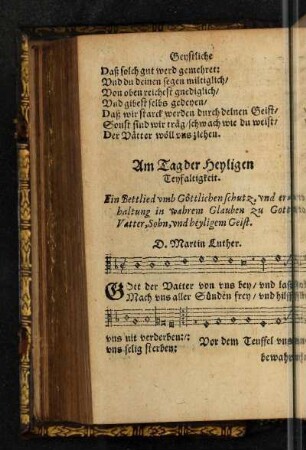 Geystliche
Daß solch gut werd gemehret:
Vnd du deinen segen miltiglich/
Von oben reichest gnediglich/
Vnd gibest selbs gedeyen/
Daß wir starck werden durch deinen Geist/
Sonst sind wir träg/schwach wie du weist/
Der Vätter wöll vns ziehen.
Am Tag der Heyligen
Teyfaltigkeit.
Ein Bettlied vmb Göttlichen schutz, vnd er
haltung in wahrem Glauben zu Gott
Vatter, Sohn, vnd heyligem Geist.
D. Martin Luther.
GOtt der Vatter von vns bey/ vnd laß
Mach vns aller Sünden frey/ vnd hilff
vns nit verderben:/: Vor dem Teuffel vns
vns selig sterben:
bewahr